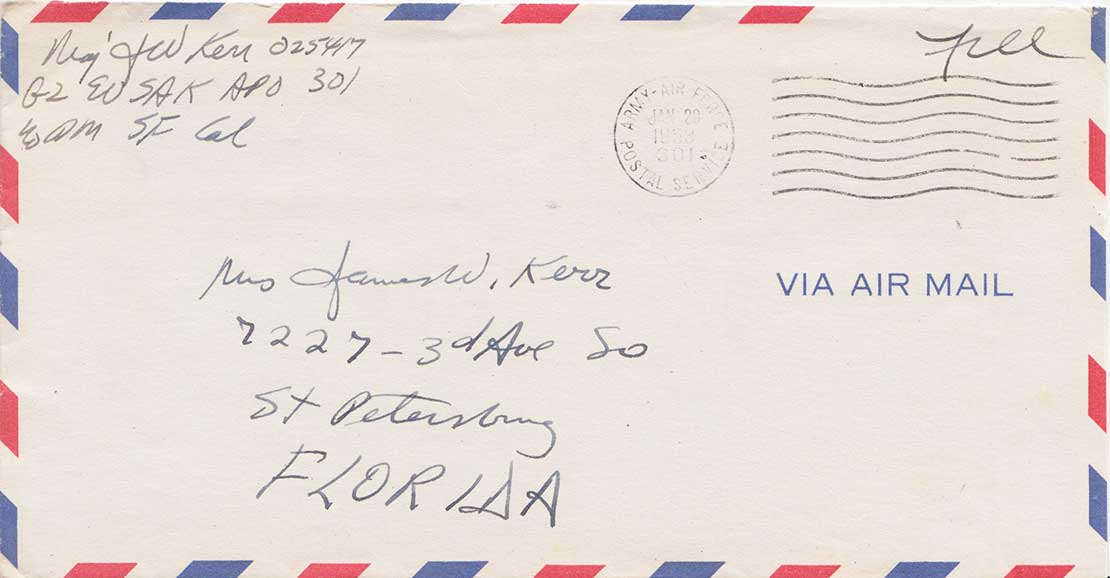 Maj JW Kerr 025417
G2 EUSAK APO 301
℅ PM SF Cal
Free
ARMY-AIR FORCE
JAN 29
1953
301
POSTAL SERVICE
VIA AIR MAIL
Mrs James W. Kerr
7227-3d Ave So
St Petersburg
FLORIDA